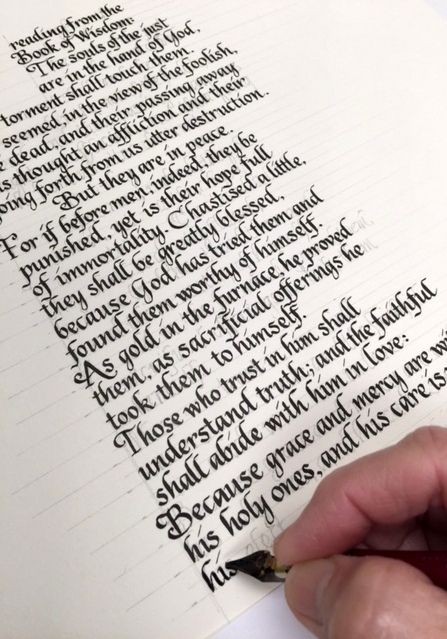 reading from the
Book of Wisdom:
The souls of the just
are in the hand of God,
torment shall touch them.
seemed, in the view of the foolish,
dead, and their passing away
thought an affliction and their
going forth from us utter destruction.
But they are in peace.
For if before men, indeed, they be
punished, yet is their hope full
of immortality. Chastised a little,
they shall be greatly blessed
because God has tried them and
found them worthy of himself.
As gold in the furnace, he proved
them, as sacrificial offerings he
took them to himself.
Those who trust in him shall
understand truth; and the faithful
shall abide with him in love:
Because grace and mercy are
his holy ones, and his care is
his